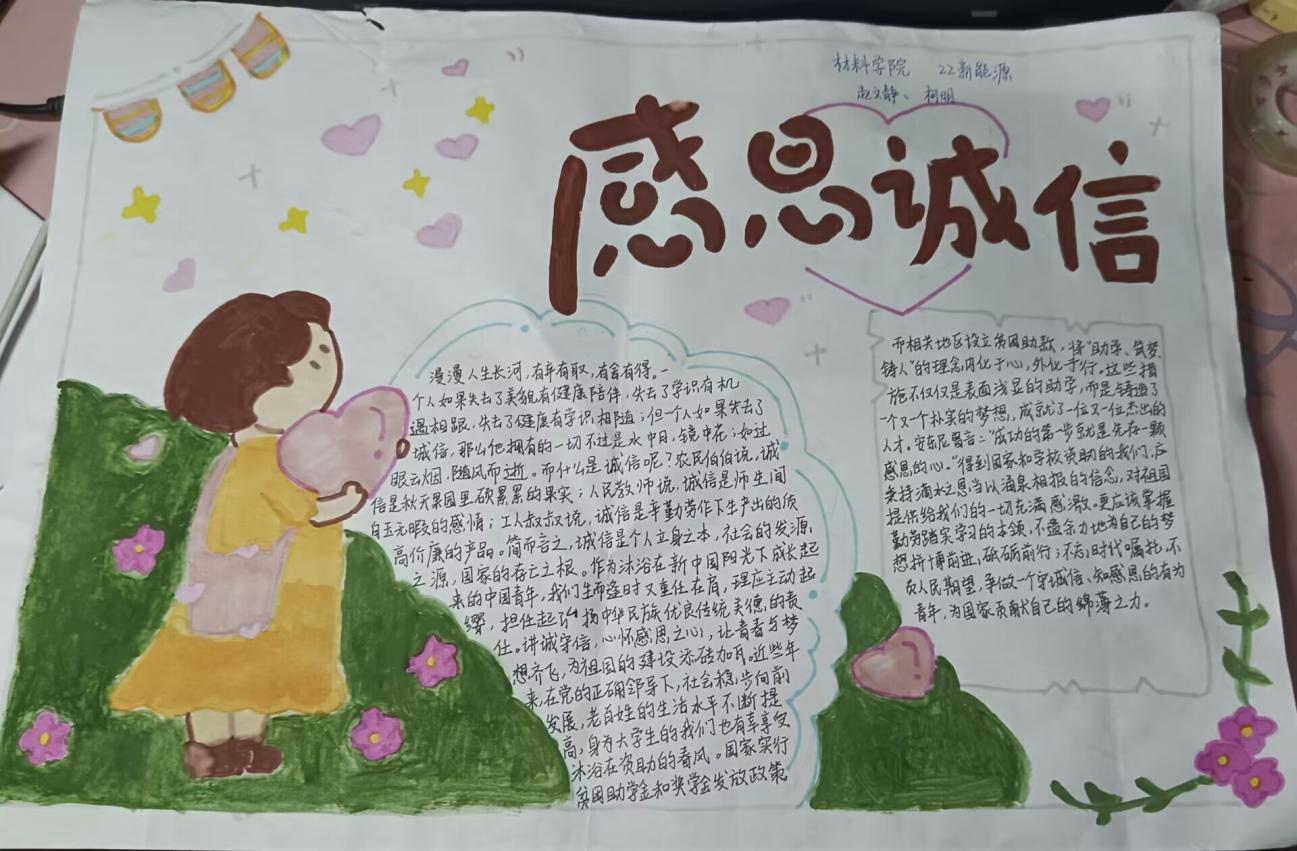 材料学院 22新能源
赵文静、柯明
感恩诚信
漫漫人生长河,有弃有取,有舍有得。一
个人如果失去了美貌有健康陪伴,失去了学识有机
遇相跟,失去了健康有学识相随;但一个人如果失去了
诚信,那么他拥有的一切不过是水中月,镜中花;如过
眼云烟,随风而逝。而什么是诚信呢?农民伯伯说,诚
信是秋天果园里硕果累累的果实;人民教师说,诚信是师生间
白玉无暇的感情;工人叔叔说,诚信是辛勤劳作下生产出的质
高价廉的产品。简而言之,诚信是个人立身之本,社会的发源
之源,国家的存亡之根。作为沐浴在新中国阳光下成长起
来的中国青年,我们生而逢时又重任在肩,理应主动起
缨,担任起弘扬中华民族优良传统美德的责
任。讲诚守信,心怀感恩之心,让青春与梦
想齐飞,为祖国的建设添砖加瓦。近些年
来,在党的正确领导下,社会稳步向前
发展,老百姓的生活水平不断提
高,身为大学生的我们也有幸享受
沐浴在资助的春风。国家实行
贫困助学金和奖学金发放政策
而相关地区设立贫困助款,将"助学、筑梦、
铸人"的理念内化于心,外化于行。这些措
施不仅仅是表面浅显的助学,而是铸造了
一个又一个朴实的梦想,成就了一位又一位杰出的
人才。安东尼曾言:"成功的第一步就是先存一颗
感恩的心。"得到国家和学校资助的我们,应
秉持滴水之恩当以涌泉相报的信念,对祖国
提供给我们的一切充满感激。更应该掌握
勤劳踏实学习的本领,不遗余力地为自己的梦
想拼博前进,砥砺前行;不忘时代嘱托,不
负人民期望,争做一个守诚信、知感恩的有为
青年,为国家贡献自己的绵薄之力。